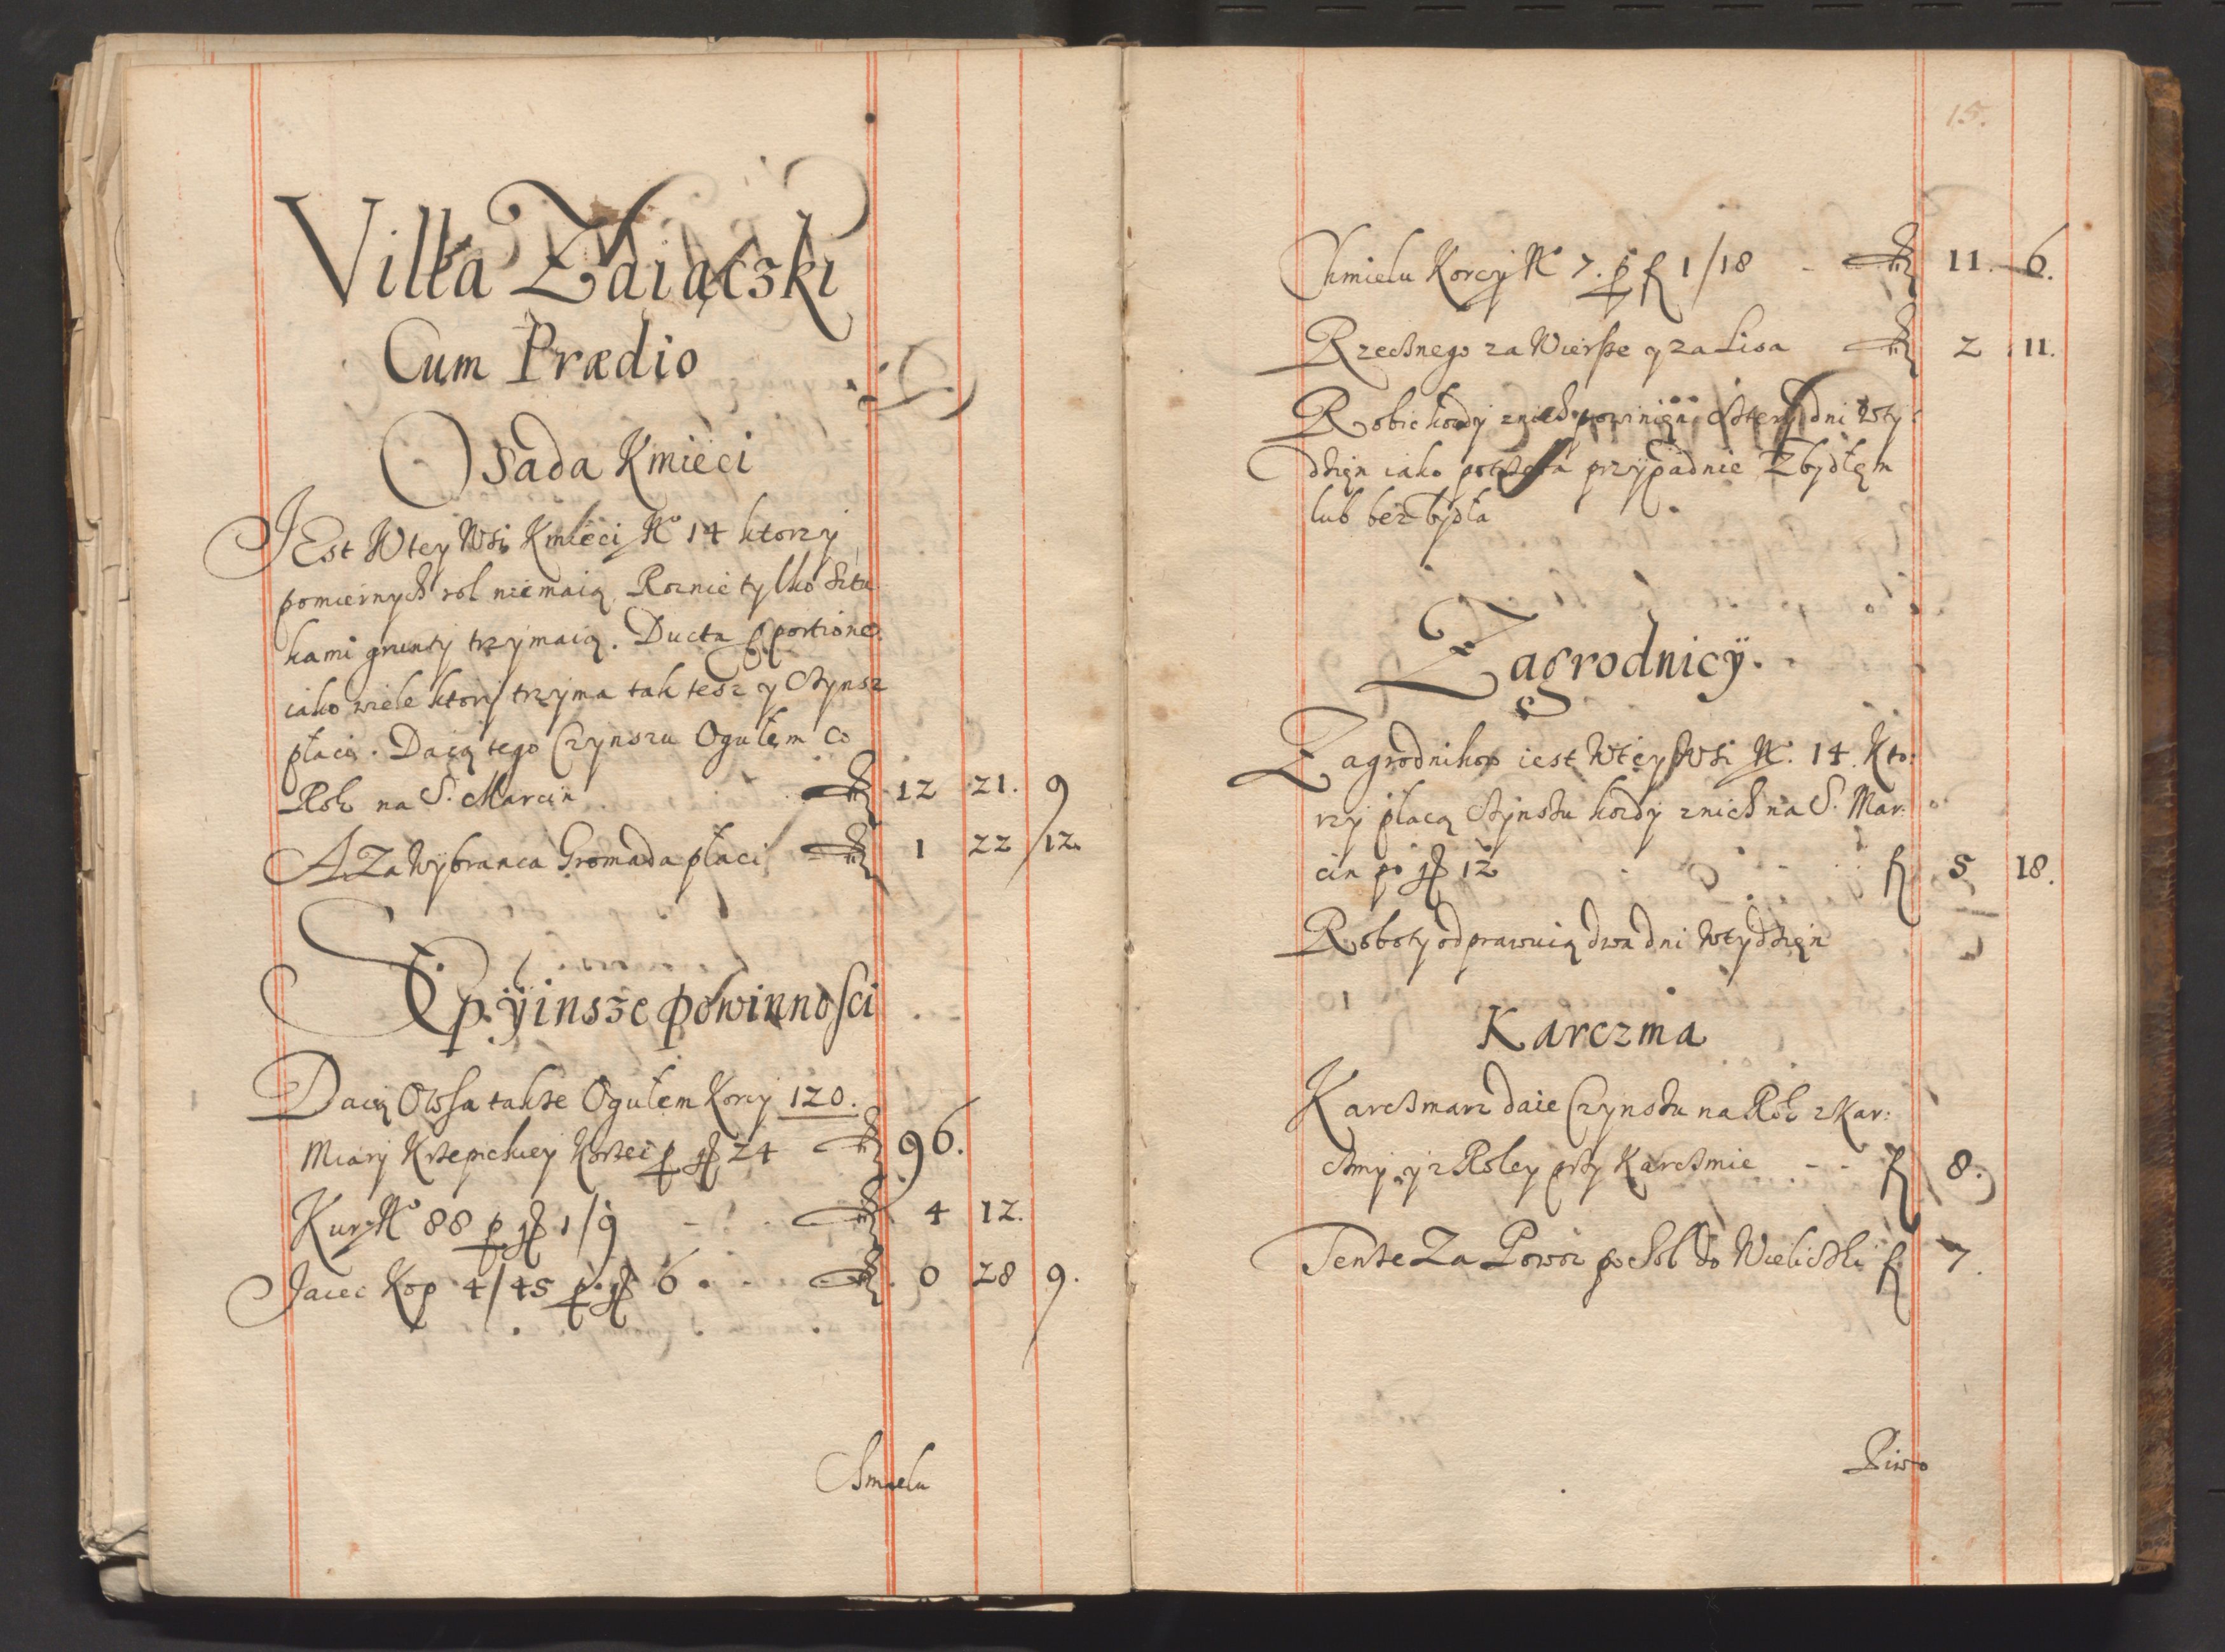 Villa Zaiączki
Cum Prædio
Osada Kmieci
JEst Wtey Wsi Kmieci No 14 ktorzy
pomiernych rol niemaią, Roznie tylko Sztu
kami grunty trzymaią. Ducta proportione
iako wiele ktory trzyma tak tesz y Czynsz
płaci. Daią tego Czynszu Ogułem co
Rok na S. Marcin 12 21. 9
A Za Wybranca Gromada płaci 1 22 12.
Sep. y insze powinnosci
Daią Owsa takze Ogułem Korcy 120.
Miary Krzepickiey Korzec p gſ 24 96.
Kur No 88 p gſ 1/9 4 12.
Jaiec Kop 4/45 p. gſ 6. 0 28 9.
Chmielu
15.
Chmielu Korcy No 7. p f 1/18 11. 6.
Rzecznego za Wiersze y za Lisa 2 11.
Robic kozdy znich powinięn cztery dni wty
dzięn iako potrzeba przypadnie Zbydłęm
lub bez bydła
Zagrodnicy.
Zagrodnikow iest Wtey Wsi No. 14. Kto:
rzy płacą Czynszu kozdy znich na S. Mar:
cin po gſ 12 f 5 18.
Roboty odprawuią dwa dni wtydzięn
Karczma
Karczmarz daie Czynszu na Rok z Kar:
czmy y z Roley przy Karczmie f 8.
Tenze Za Powoz po Sol do Wieliczki f 7.
Piwo